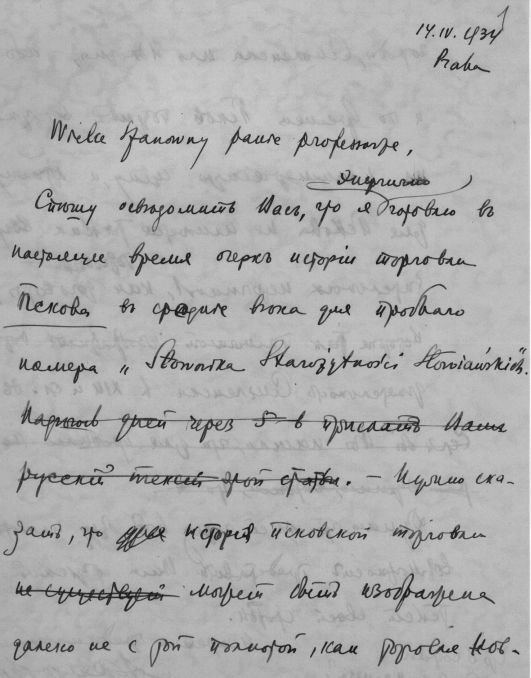 14.IV.1934
Praha
Wielce szanowny panie profesorze,
энергично
Спѣшу освѣдомить Васъ, что я готовлю въ
настоящее время очеркъ исторіи торговли
Пскова въ средніе вѣка для пробнаго
номера „Słownika Starożytności Słowiańskich".
дней через 5 - в прислать Вамъ
русскій текст этой статьи. — Нужно ска-
зать, что исторія псковской торговли
не существует может быть изображена
далеко не с той полнотой, как торговля Нов-